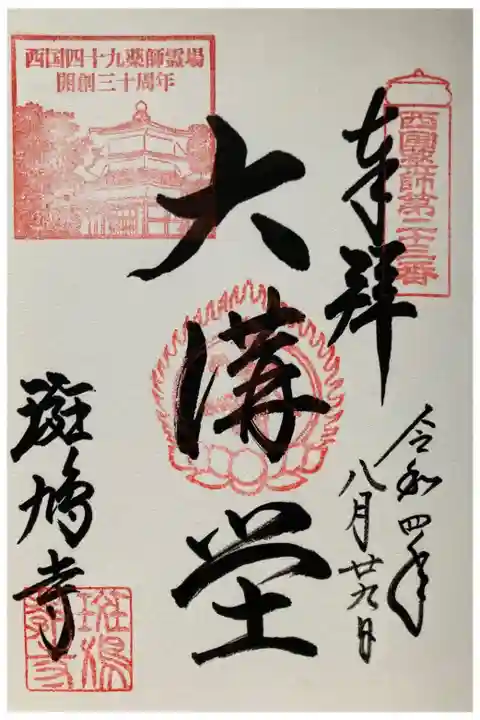 西国薬師第二十三番
奉拝
令和四年
八月廿九日
西国四十九薬師霊場
開創三十周年
大講堂
斑鳩寺
斑鳩
寺